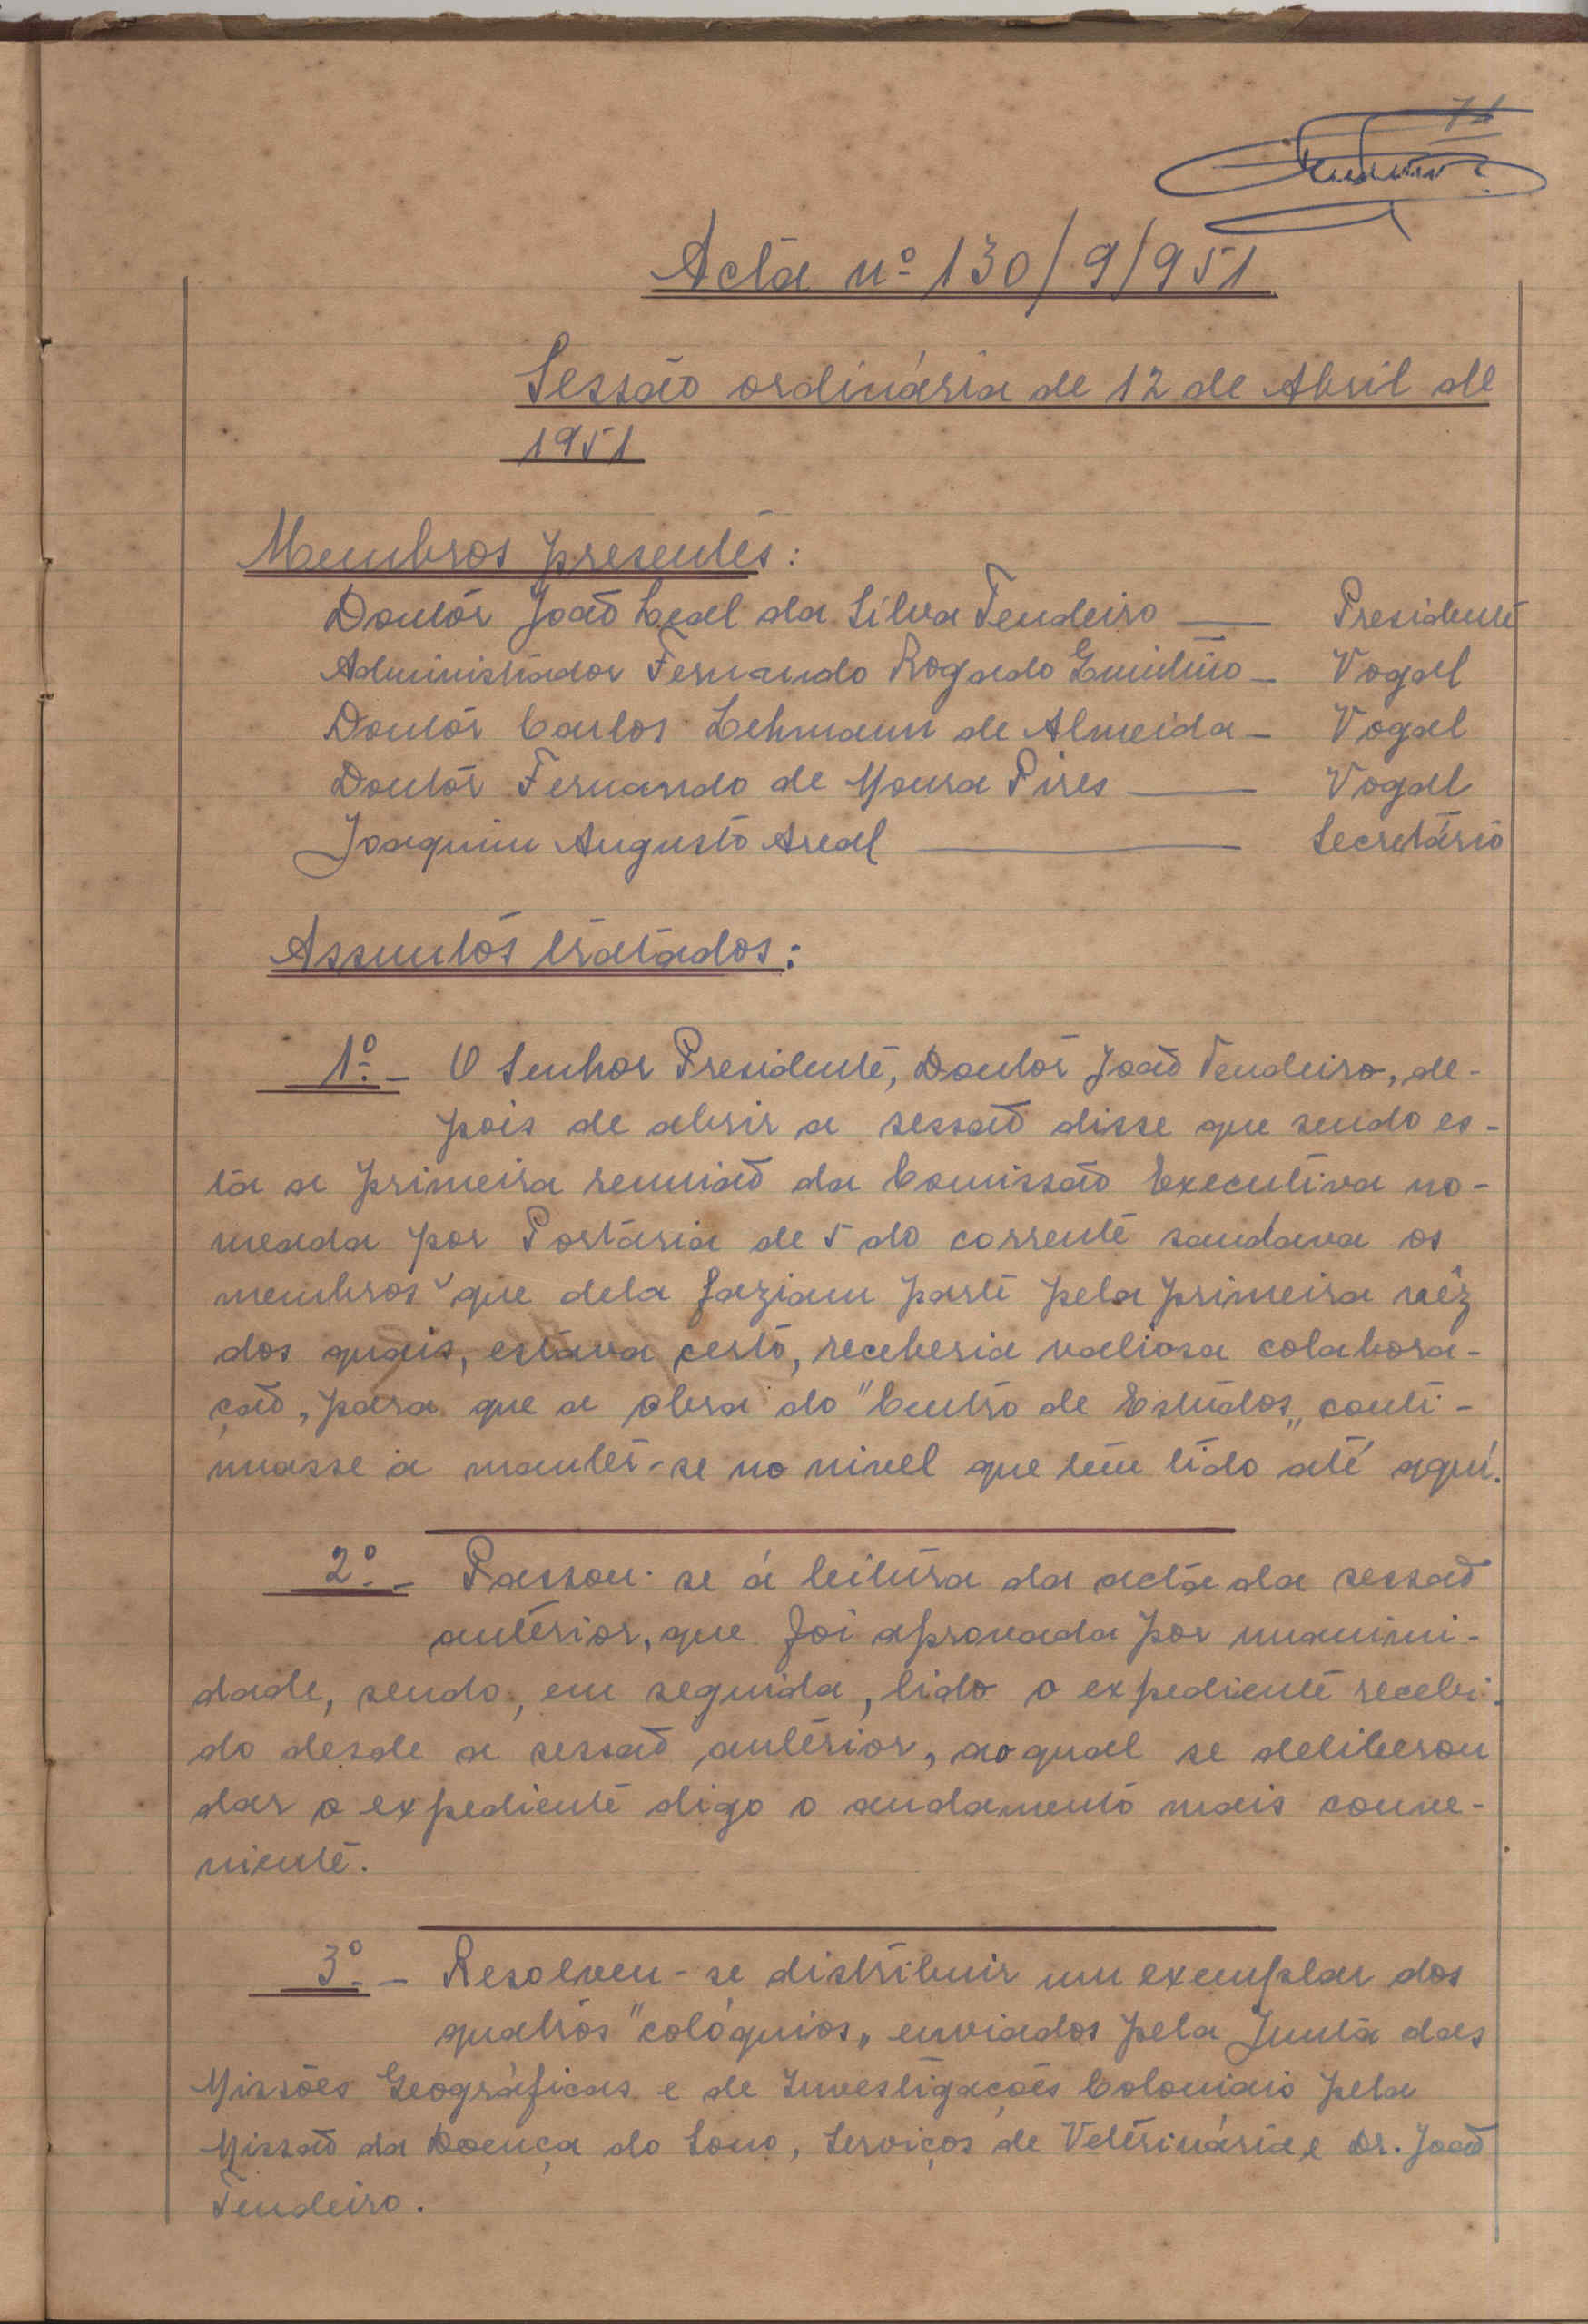 71
Acta nº 130/9/951
Sessão ordinária de 12 de Abril de
1951
Membros presentes:
Doutor João Leal da Silva Tendeiro — Presidente
Administrador Fernando Rogado Quintino — Vogal
Doutor Carlos Lehmann de Almeida — Vogal
Doutor Fernando de Moura Pires — Vogal
Joaquim Augusto Areal — Secretário
Assuntos tratados:
1º. - O Senhor Presidente, Doutor João Tendeiro, de-
pois de abrir a sessão disse que sendo es-
ta a primeira reunião da Comissão Executiva no-
meada por Portaria de 5 do corrente saudava os
membros que dela faziam parte pela primeira vêz
dos quais, estava certo, receberia valiosa colabora-
ção, para que a obra do "Centro de Estudos„ conti-
nuasse a manter-se no nivel que tem tido até aquí.
2º. - Passou-se á leitura da acta da sessão
anterior, que foi aprovada por unanimi-
dade, sendo, em seguida, lido o expediente recebi-
do desde a sessão anterior, ao qual se deliberou
dar o expediente digo o andamento mais conve-
niente.
3º. - Resolveu-se distribuir um exemplar dos
quatros "colóquios„ enviados pela Junta das
Missões Geográficas e de Investigações Coloniais pela
Missão da Doença do Sono, Serviços de Veterinária e Dr. João
Tendeiro.